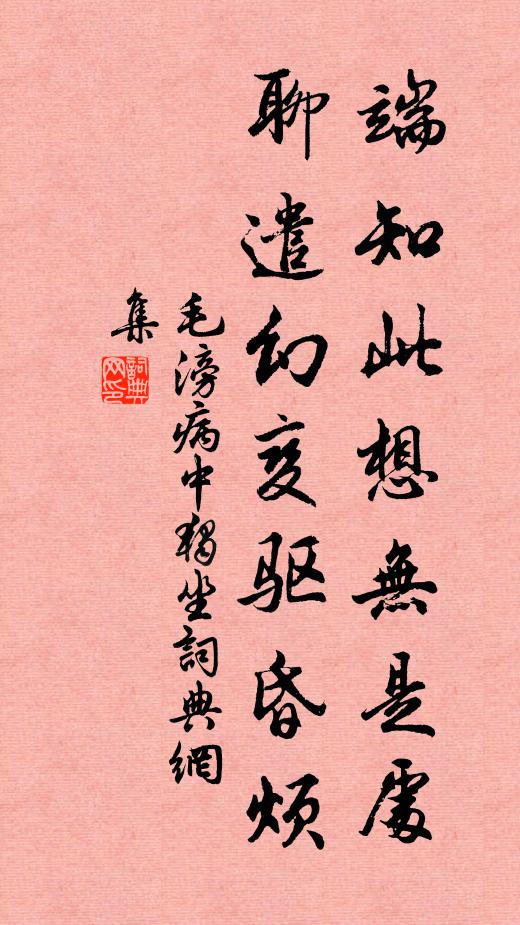 端知此想無是處
聊遣幻变驱昏烦
毛滂病中獨坐詞典網
集
詞典
网印